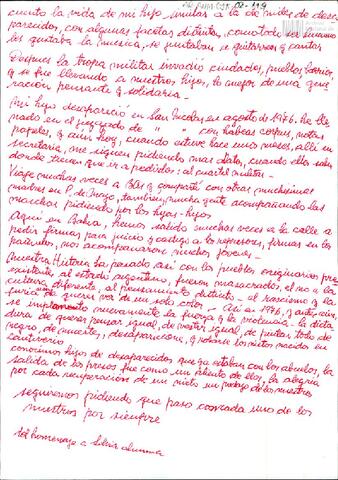 cuento la vida de mi hijo, similar a la de miles de desa-
parecidos, con algunas facetas distintas, como todos los jóvenes
les gustaba la música, se juntaban a guitarrear y cantar
Después la tropa militar invadió ciudades, pueblos, barrios,
y se fue llevando a nuestros hijos, lo mejor de una gene-
ración pensante y solidaria.
Mi hijo desapareció en San Nicolás en agosto de 1976. he lle-
nado en el juzgado de " " con habeas corpus, notas
papeles, y aun hoy, cuando estuve hace unos meses, allí en
secretaría, me siguen pidiendo mas datos, cuando ellos saben
donde tienen que ir a pedirlos: al cuartel militar -
Viajé muchas veces a Bs As y compartí con otras muchísimas
madres en P. de Mayo, también mucha gente acompañando las
marchas pidiendo por los hijos - hijas
Aquí en Bahía, hemos salido muchas veces a la calle a
pedir firmas para juicio y castigo a los represores, firmas en los
pañuelos, nos acompañaron muchos jóvenes -
Nuestra Historia ha pasado así con los pueblos originarios pre
existente al estado argentino, fueron masacrados, el no a la
cultura diferente, al pensamiento distinto - el racismo y la
furia de querer ver de un solo color - Así en 1976, y antes, aún,
se implantó nuevamente la fuerza y la prepotencia - la dicta
dura de querer pensar igual, de vestir igual, de pintar todo de
negro, de muerte, desapariciones, y robarse los nietos nacidos en
cautiverio
conocimos hijos de desaparecidos que ya estaban con los abuelos, la
salida de los presos fue como un aliento de ellos, la alegría
por cada recuperación de un nieto un pedazo de los nuestros
seguiremos pidiendo que pasó con cada uno de los
nuestros por siempre
del homenaje a Silvia alumna